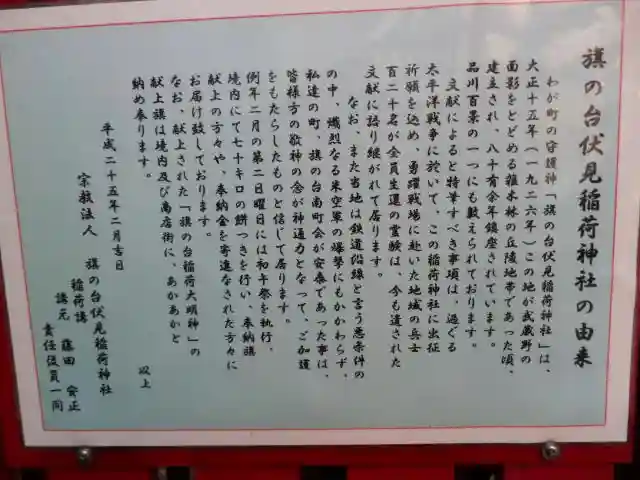 旗の台伏見稲荷神社の由来
わが町の守護神「旗の台伏見稲荷神社」は、
大正十五年(一九二六年)この地が武蔵野の
面影をとどめる雑木林の丘陵地帯であった頃、
建立され、八十有余年鎮座されています。
品川百景の一つにも数えられております。
文献によると特筆すべき事項は、過ぐる
太平洋戦争に於いて、この稲荷神社に出征
祈願を込め、勇躍戦場に赴いた地域の兵士
百二十名が全員生還の霊験は、今も遺された
文献に語り継がれて居ります。
なお、また当地は鉄道沿線と言う悪条件の
の中、熾烈なる米空軍の爆撃にもかかわらず、
私達の町、旗の台南町会が安泰であった事は、
皆様方の敬神の念が神通力となって、ご加護
をもたらしたものと信じて居ります。
例年二月の第二日曜日には初午祭を執行、
境内にて七十キロの餅つきを行い、奉納旗
献上の方々や、奉納金を寄進なされた方々に
お届け致しております。
なお、献上された「旗の台稲荷大明神」の
献上旗は境内及び商店街に、あかあかと
納め奉ります。
以上
平成二十五年二月吉日
宗教法人 旗の台伏見稲荷神社
稲荷講
講元 藤田 安正
責任役員一同